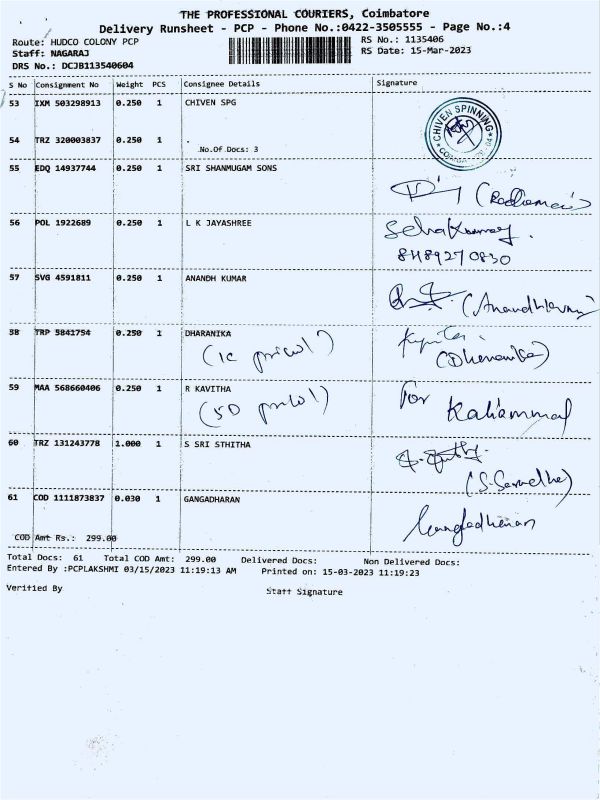 THE PROFESSIONAL COURIERS, Coimbatore
Delivery Runsheet - PCP - Phone No.:0422-3505555 - Page No.:4
Route: HUDCO COLONY PCP
Staff: NAGARAJ
DRS No.: DCJB113540604
RS No.: 1135406
RS Date: 15-Mar-2023
S No Consignment No Weight PCS Consignee Details Signature
53 IXM 503298913 0.250 1 CHIVEN SPG
CHIVEN SPINNING
54 TRZ 320003837 0.250 1 .
No.Of Docs: 3
55 EDQ 14937744 0.250 1 SRI SHANMUGAM SONS
56 POL 1922689 0.250 1 L K JAYASHREE
8489270830
57 SVG 4591811 0.250 1 ANANDH KUMAR
58 TRP 5841754 0.250 1 DHARANIKA
59 MAA 568660406 0.250 1 R KAVITHA
For Kaliammal
60 TRZ 131243778 1.000 1 S SRI STHITHA
61 COD 1111873837 0.030 1 GANGADHARAN
Gangadharan
COD Amt Rs.: 299.00
Total Docs: 61 Total COD Amt: 299.00 Delivered Docs: Non Delivered Docs:
Entered By :PCPLAKSHMI 03/15/2023 11:19:13 AM Printed on: 15-03-2023 11:19:23
Verified By Staff Signature